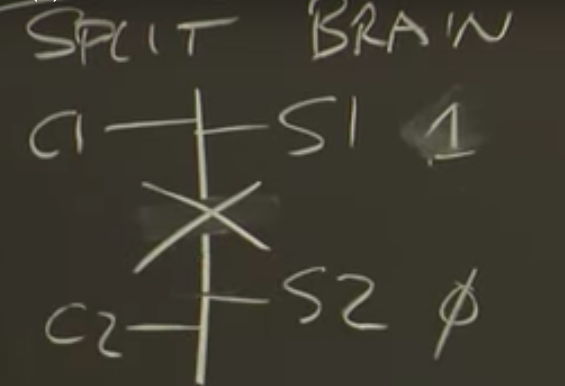 SPLIT BRAIN
C1 S1 1
C2 S2 ∅